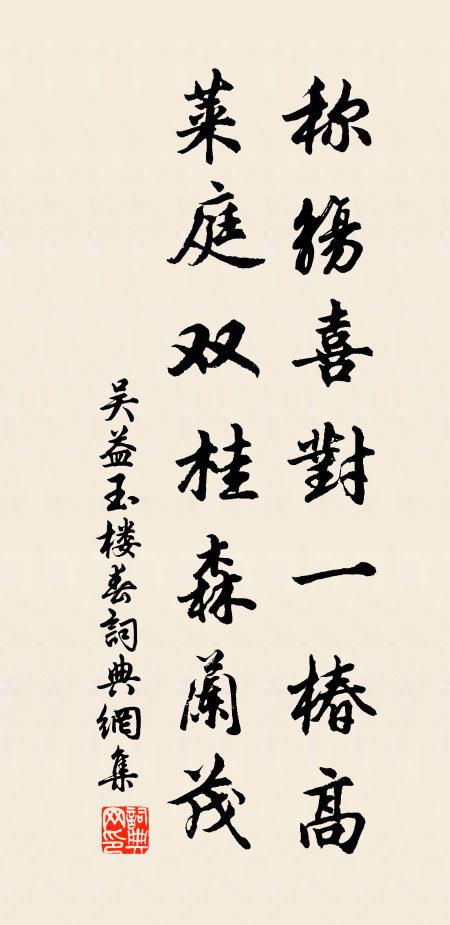 称觞喜對一椿高
莱庭双桂森蘭茂
吴益玉楼春詞典網集
詞典網印